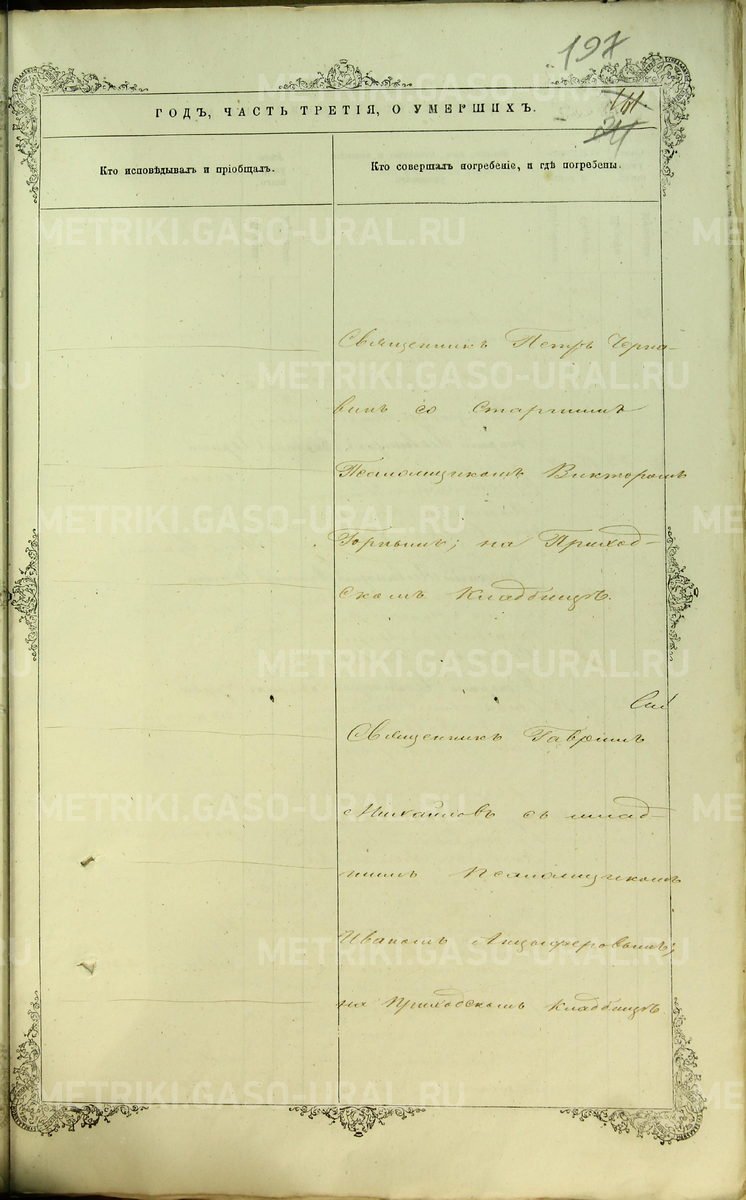 197
161
ГОДЪ, ЧАСТЬ ТРЕТІЯ, О УМЕРШИХЪ.
Кто исповѣдывалъ и пріобщалъ.
Кто совершалъ погребеніе, и гдѣ погребены.
Священникъ Петръ Черна-
винъ со Старшимъ
Псаломщикомъ Викторомъ
Горнымъ; на Приход-
скомъ Кладбищѣ.
Священникъ Гавріилъ
Михайловъ съ млад-
шимъ Псаломщикомъ
Иваномъ Анцыферовымъ;
на Приходскомъ Кладбищѣ
METRIKI.GASO-URAL.RU